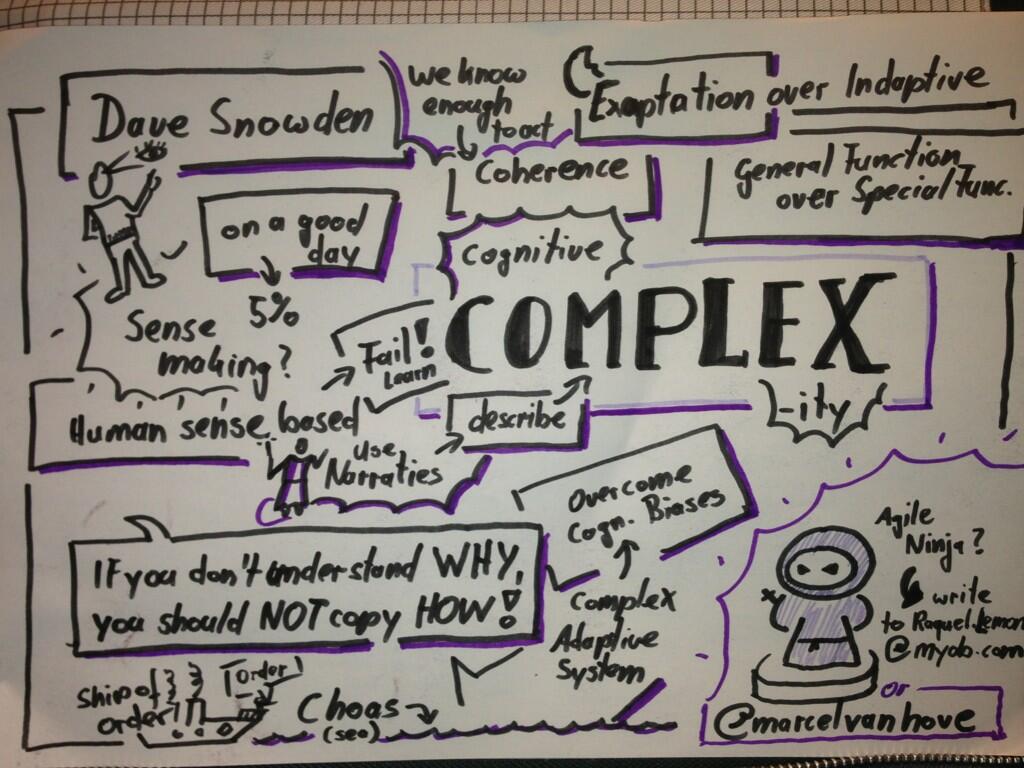 Dave Snowden
we know
enough
to act
Exaptation over Indaptive
Coherence
General Function
over Special Func.
on a good
day
5%
cognitive
COMPLEX
-ity
Sense
making?
Fail!
Learn
Human sense based
describe
Use
Norraties
Overcome
Cogn. Biases
If you don't understand WHY,
you should NOT copy HOW!
Complex
Adaptive
System
Agile
Ninja?
write
to Raquel.Lemon
@myob.com
or
@marcelvanhove
Ship of
order!
order!
Choas
(sea)